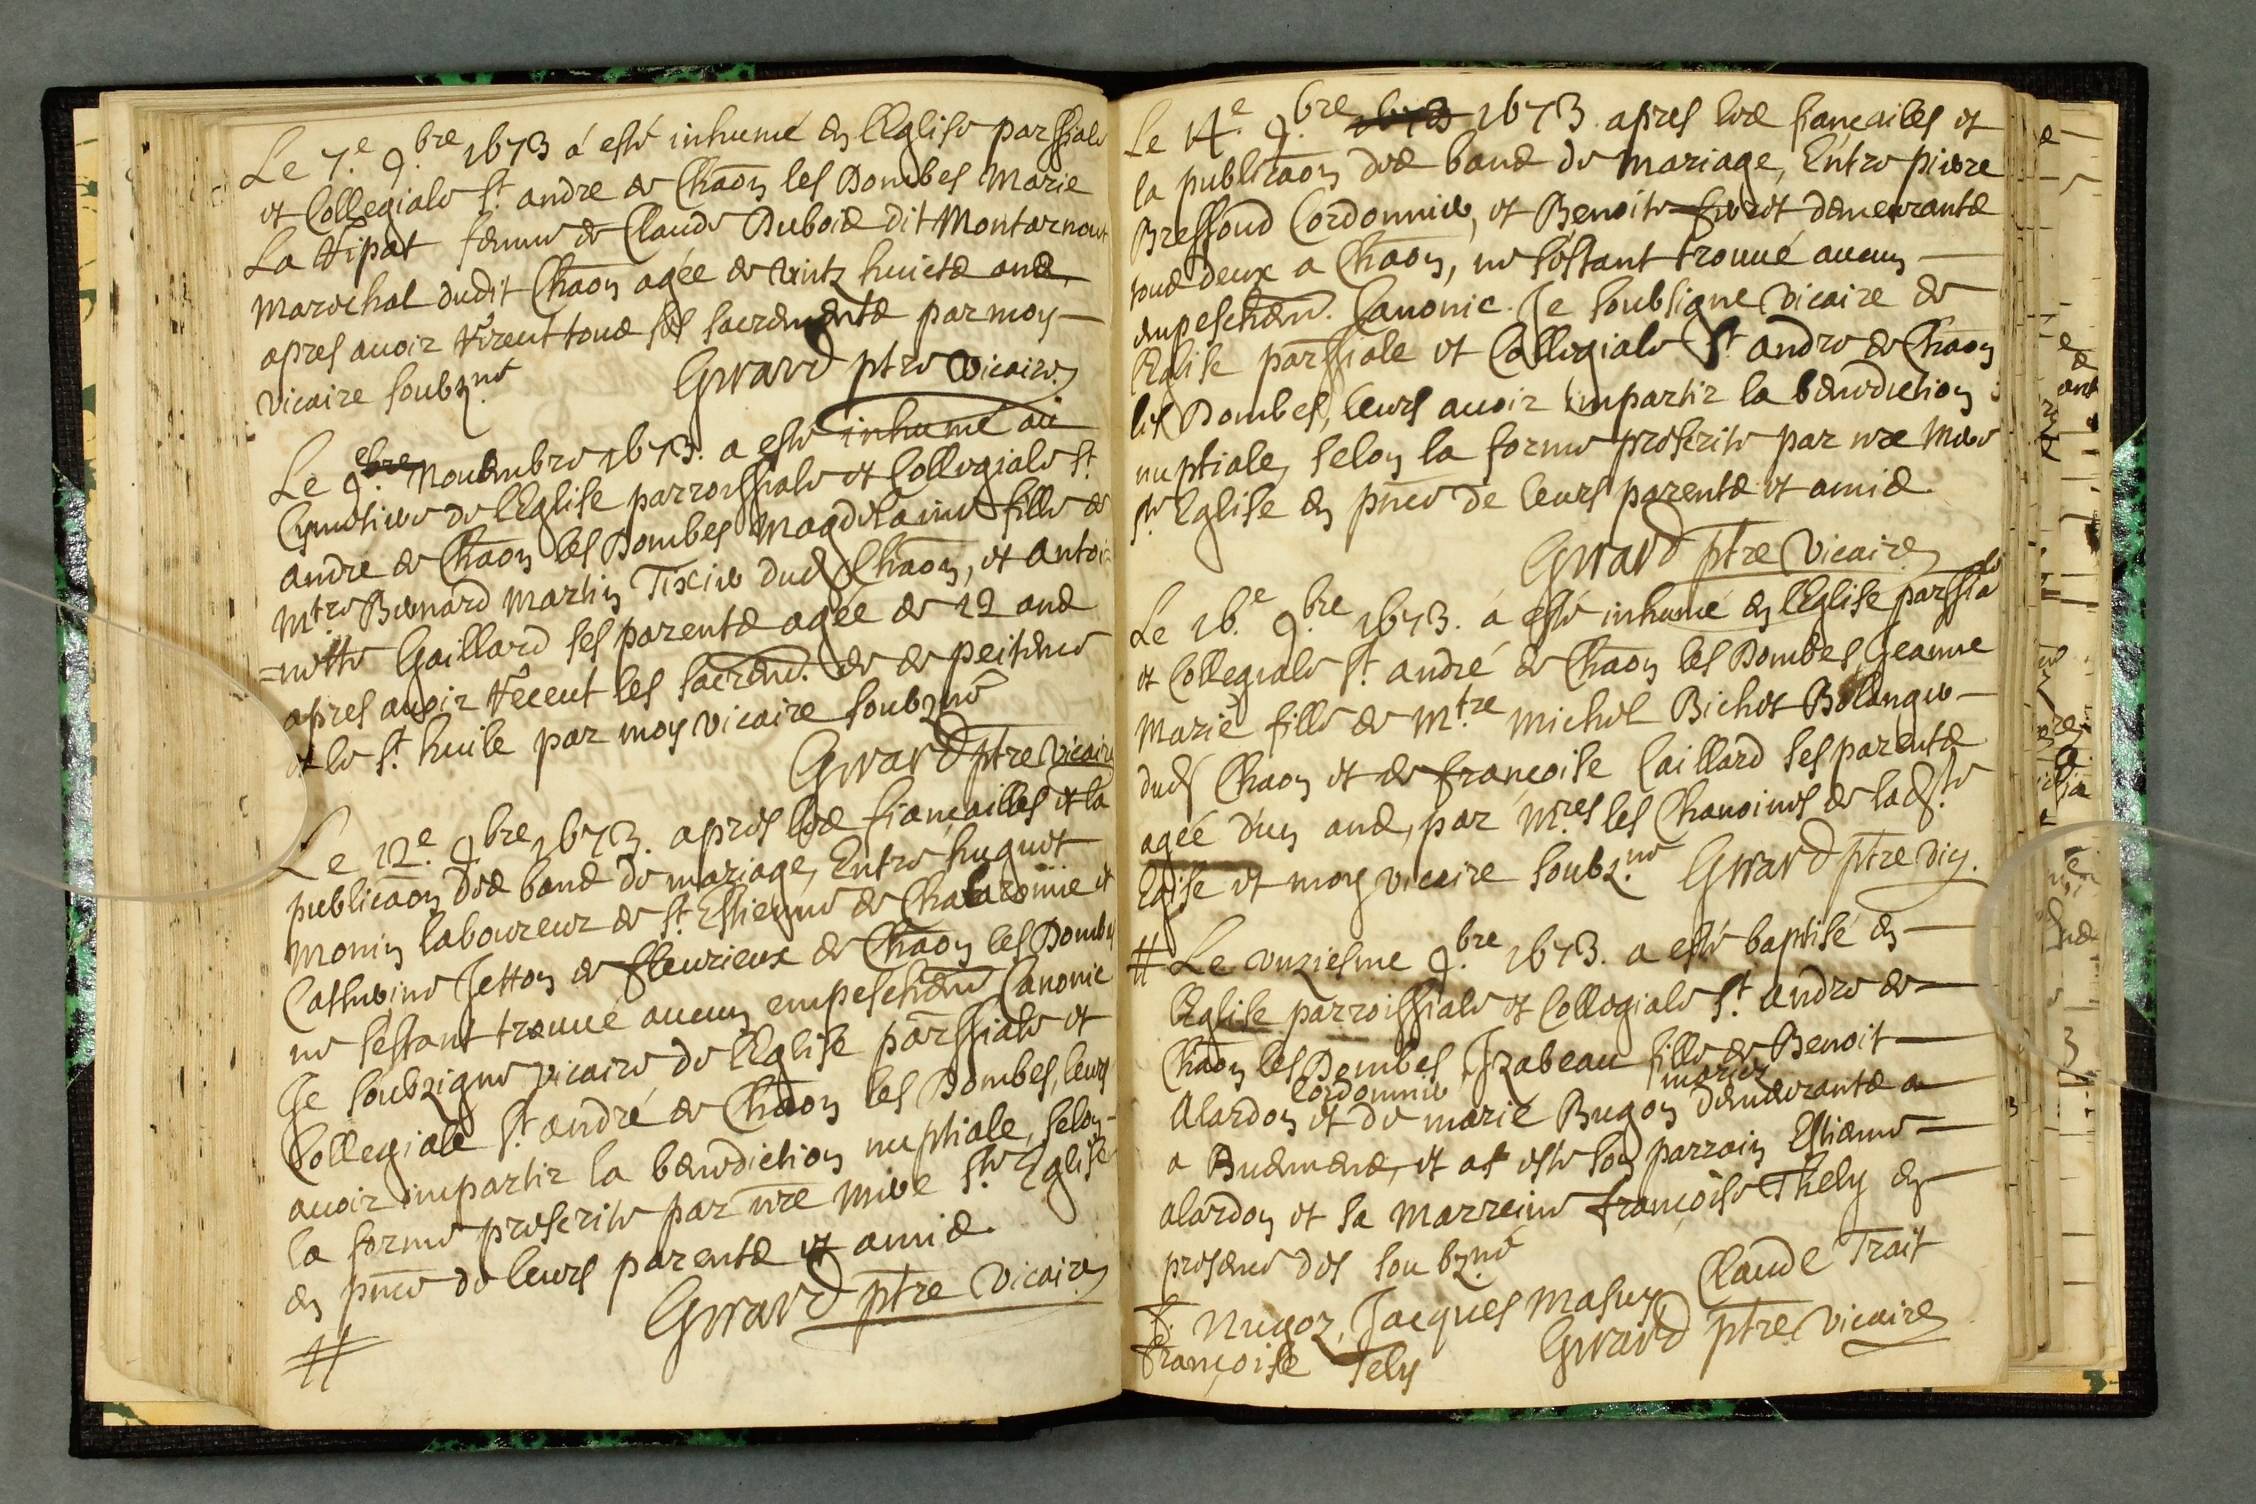 Le 7.e 9.bre 1673 á esté inhumé en l'Eglise parssiale
et Collegiale St. andre de Chaon les Dombes Marie
La femme de Claude Dubois dit Montarnout
Mareschal dudit Chaon agée de vintz huicts ans,
apres auoir receut tous ses sacrements par moy
vicaire soubz.né Girard ptre vicaire
Le 9.ebre Nouembre 1673. a esté inhumé au
Cymetiere de l'Eglise parroissiale et Collegiale St.
andre de Chaon les Dombes Magdelaine fille de
Mtre Bernard Martin Tixier dud Chaon, et Antoi-
=nette Gaillard ses parents agée de 12 ans
apres auoir receut les sacrem. de de peitence
et le St. huile par moy vicaire soubzné
Girard ptre vicaire
Le 12.e 9.bre 1673. apres les fiançailles et la
publicaon des bans de mariage, Entre huguet
Monin laboureur de St. Estienne de Chalaronne et
Catherine Jetton de fleurieux de Chaon les Dombes
ne s'estant trouué aucun empeschem Canonic
Je soubzigne vicaire de l'Eglise parssiale et
Collegiale St. andré de Chaon les Dombes, leurs
auoir impartir la benediction nuptiale, selon-
la forme prescrite par nre Mere Ste Eglise
en pnce de leurs parents et amis.
Girard ptre vicaire
#
Le 14.e 9.bre 1673 1673 apres les fiançailes et
la publicaon des bans de Mariage, Entre pierre
Bressoud Cordonnier, et Benoite demeurants
tous deux a Chaon, ne s'estant trouué aucun
empeschem. Canonic. Je soubsigne vicaire de
l'Eglise parssiale et Collegiale St. andre de Chaon
les Dombes, leurs auoir impartir la benediction
nuptiale, selon la forme prescrite par nre Mere
ste Eglise en pnce de leurs parents et amis.
Girard ptre vicaire
Le 16.e 9.bre 1673. á esté inhumé en l'Eglise parssiale
et Collegiale St. andré de Chaon les Dombes Jeanne
Marie fille de M.tre Michel Bichet Bolanger
dud Chaon et de françoise Caillard ses parents
agée d'un ans, par M.res les Chanoines de lad ste
Eglise et moy vicaire soubz.né Girard ptre vic.
# Le unziesme 9.bre 1673. a esté baptisé en
l'Eglise parroissiale et Collegiale St. andre de
Chaon les Dombes Jzabeau fille de Benoit
Cordonnier mariez
Alardon et de marie Bugon demeurants a
a et at esté son parrain Estienne
alardon et sa Marreine françoise Thely en
presence des soubz.né
Claude Trait
Nugoz, Jacques Masuy
Girard ptre vicaire
françoise Tely